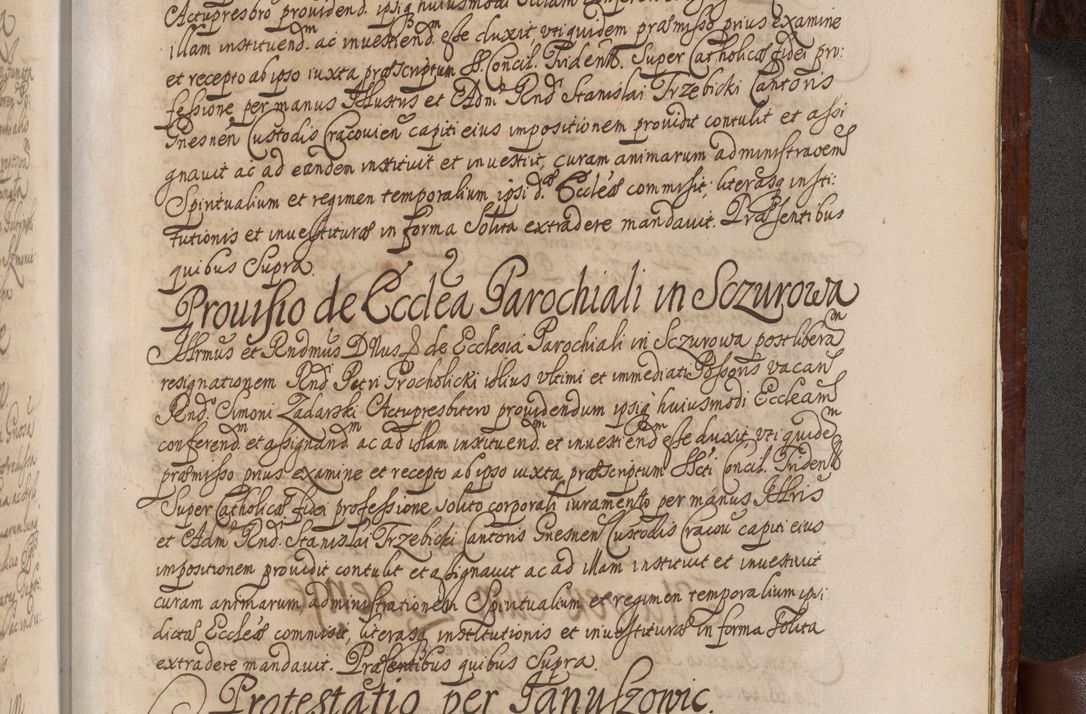 Actupresbro providend. ipsiq huiusmodi Ecclam
illam instituend. ac investiend. esse duxit, uti quidem praemisso prius examine
et recepto ab ipso iuxta praescriptum S. Concil. Trident. Super Catholicae fidei pro:
fessione per manus Illustris et Adm. Rnd. Stanislai Trzebicki Cantoris
Gnesnen Custodis Cracovien capiti eius impositionem providit contulit et assi
gnavit ac ad eandem instituit et investivit, curam animarum administracionem
Spiritualium et regimen temporalium ipsi d. Eccleae commisit; literasq insti:
tutionis et investiturae in forma Solita extradere mandavit. Praesentibus
quibus Supra.
Provisio de Ecclea Parochiali in Sczurowa
Illrmus et Rndmus DNus de Ecclesia Parochiali in Sczurowa post libera
resignationem Rnd. Petri Procholicki illius ultimi et immediati Possoris vacan
Rnd. Simoni Zadarski Actupresbitero providendum ipsiq huiusmodi Eccleam
conferend. et assignand. ac ad illam instituend. et investiend. esse duxit uti quidem
praemisso prius examine et recepto ab ipso iuxta praescriptum SScti Concil. Trident
Super Catholicae fidei professione solito corporali iuramento per manus Illris
et Adm. Rnd. Stanislai Trzebicki Cantoris Gnesnen Custodis Cracov capiti eius
impositionem providit contulit et assignavit ac ad illam instituit et investivit
curam animarum administrationem Spiritualium et regimen temporalium ipsi
dictae Eccleae commisit, literasq institutionis et investiturae in forma Solita
extradere mandavit. Praesentibus quibus Supra.
Protestatio per Januszowic.